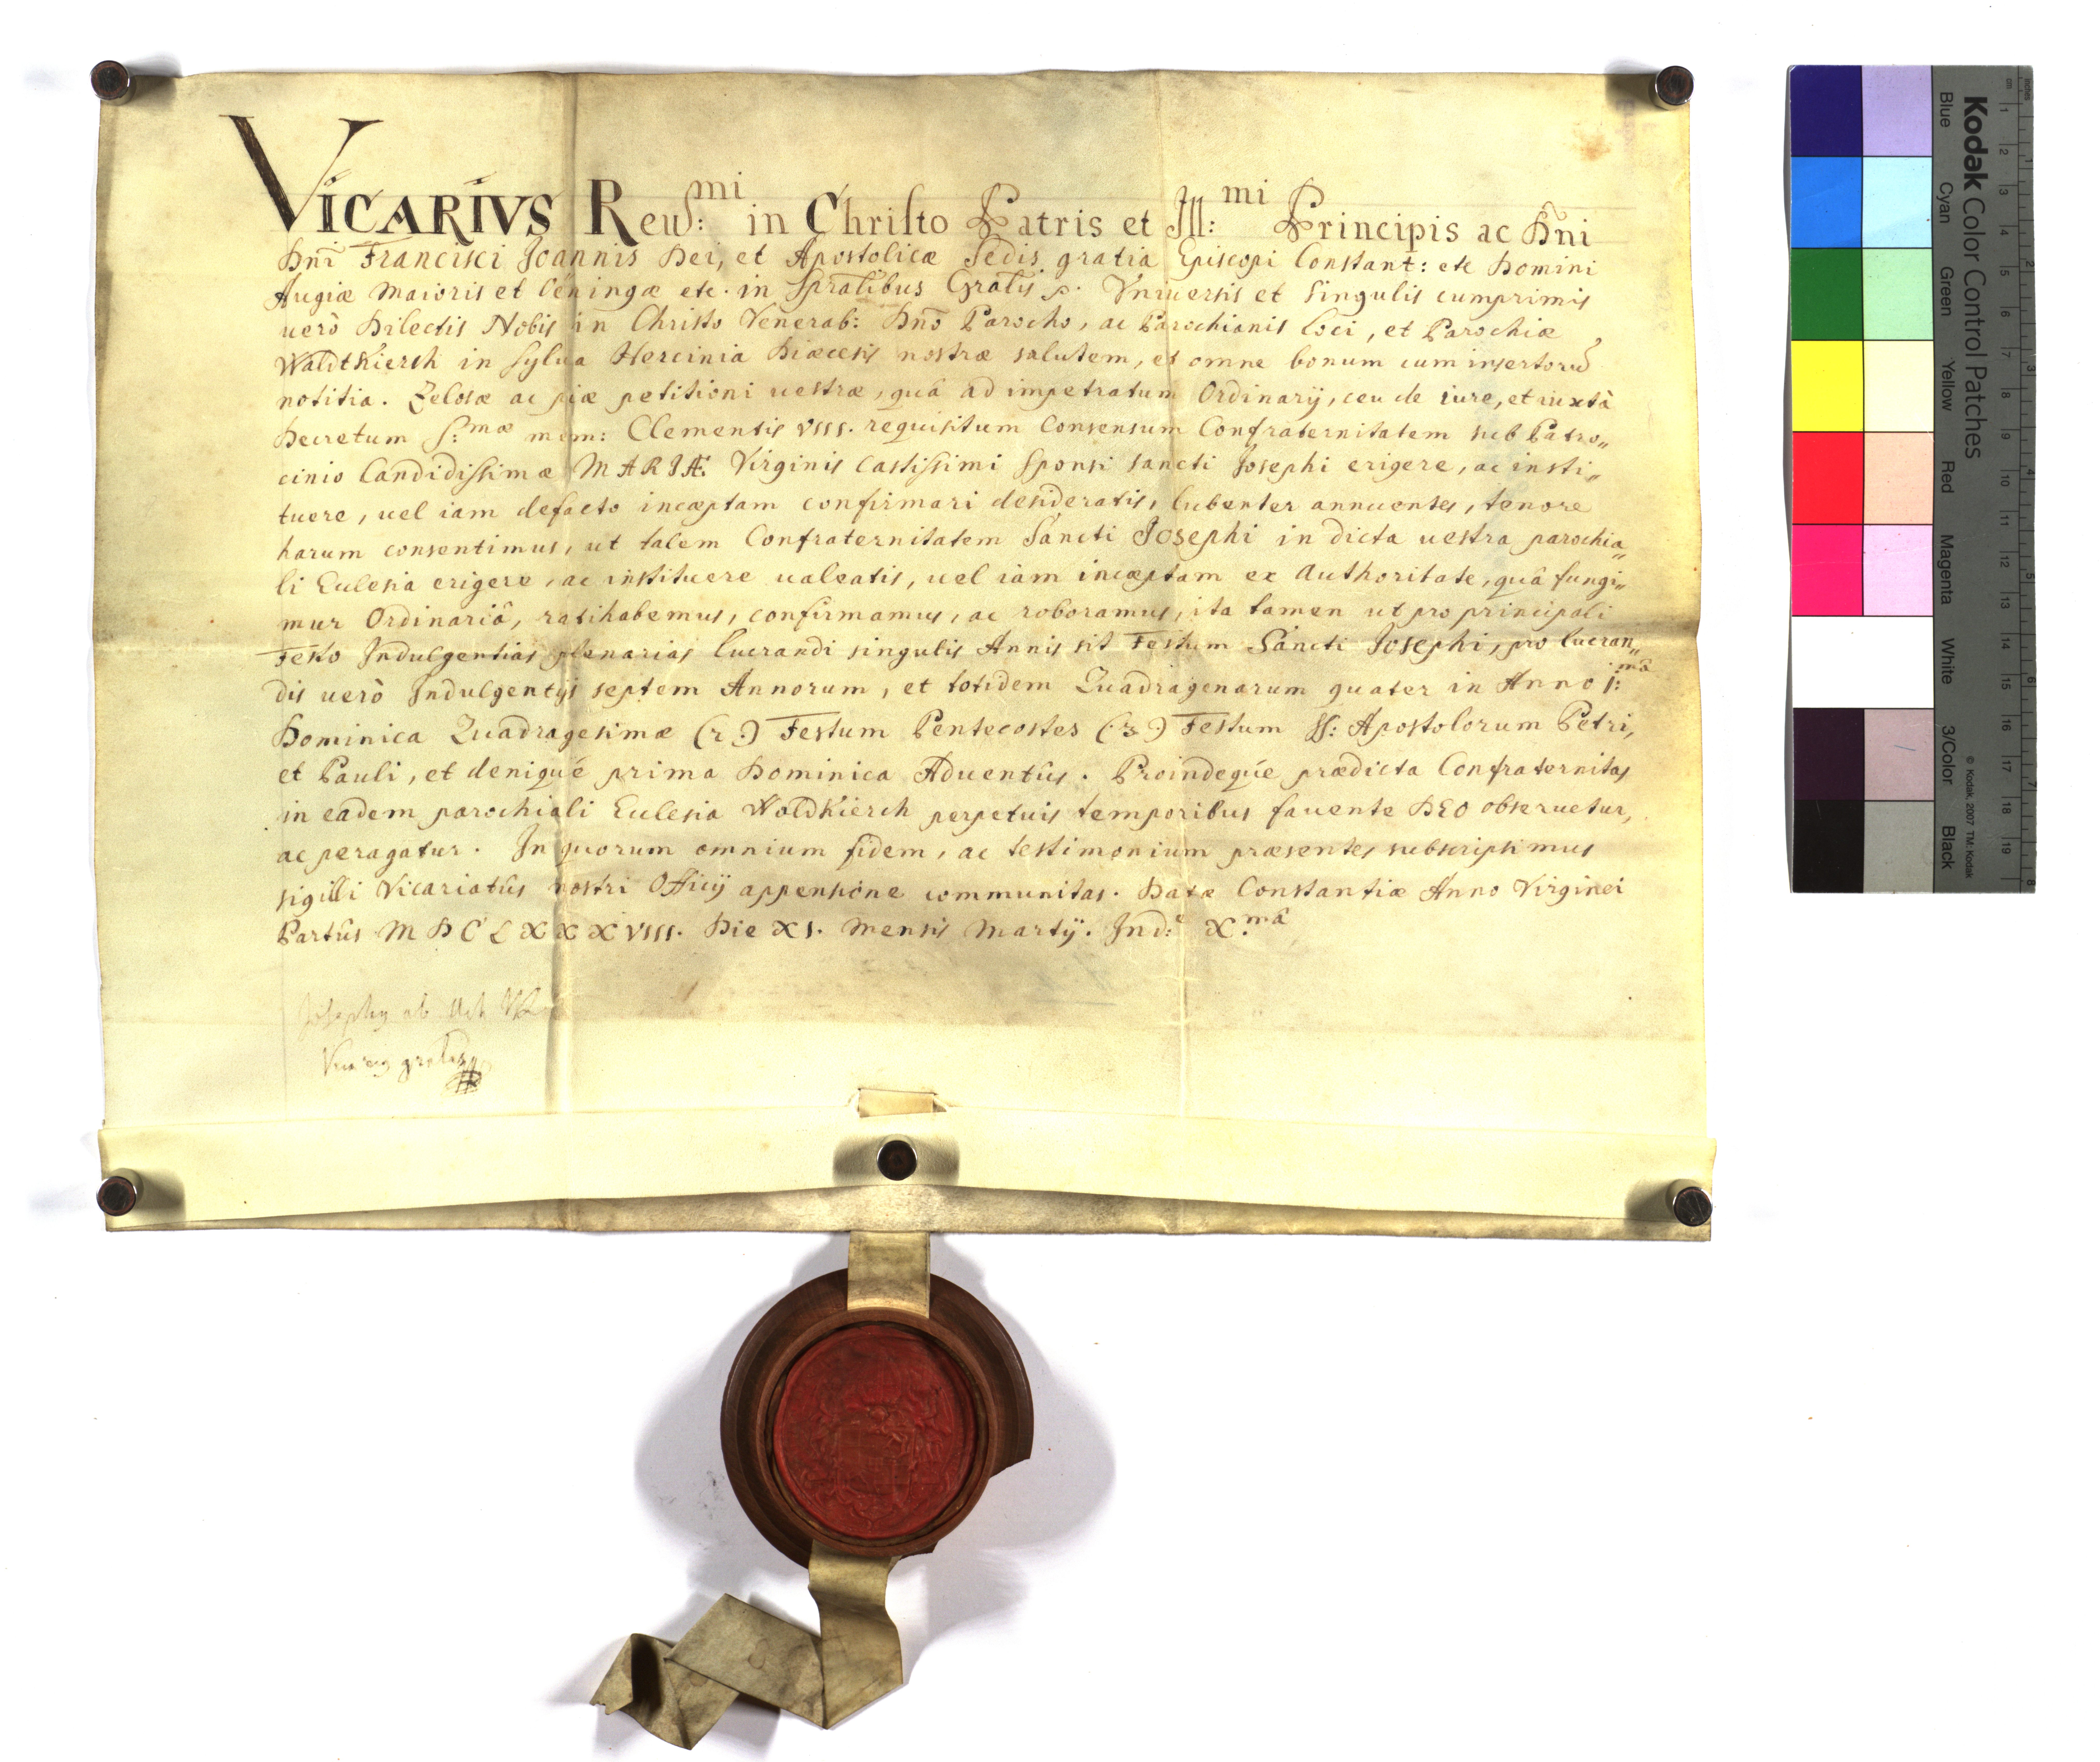 VICARIVS Reuſ:mi in Chriſto Patris et Ill:mi Principis ac Dñi
Dñi Francisci Joannis Dei, et Apostolicæ Sedis gratia Episcopi Constant: etc Domini
Augiæ Maioris et Oeningæ etc. in Spratibus Gratis p. Vniuersis et Singulis cumprimis
uerò Dilectis Nobis in Christo Venerab: Dño Parocho, ac Parochianis loci, et Parochiæ
WaldtKierch in Sylua Hercinia Diæcesis nostræ salutem, et omne bonum cum insertorũ
notitia. Zelosæ ac piæ petitioni uestræ, quâ ad impetratum Ordinarij, ceu de iure, et iuxtà
Decretum S:mæ mem: Clementis VIII. requisitum Consensum Confraternitatem sub Patro„
cinio Candidissimæ MARIÆ Virginis Castissimi Sponsi Sancti Josephi erigere, ac insti„
tuere, uel iam defacto incæptam confirmari desideratis, lubenter annuentes, tenore
harum consentimus, ut talem Confraternitatem Sancti Josephi in dicta uestra parochia„
li Eclesia erigere, ac instituere ualeatis, uel iam incæptam ex Authoritate, quâ fungi„
mur Ordinariâ, ratihabemus, confirmamus, ac roboramus, ita tamen ut pro principali
Festo Indulgentias plenarias lucrandi singulis Annis sit Festum Sancti Josephi, pro lucran„
dis uerò Indulgentijs septem Annorum, et totidem Quadragenarum quater in Anno j:mâ
Dominica Quadragesimæ (2.) Festum Pentecostes (3.) Festum SS: Apostolorum Petri,
et Pauli, et deniqué prima Dominica Aduentûs. Proindeqúe prædicta Confraternitas
in eadem parochiali Eclesia WaldKierch perpetuis temporibus fauente DEO obseruetur,
ac peragatur. In quorum omnium fidem, ac testimonium præsentes subscripsimus
sigilli Vicariatûs nostri Officij appensione communitas. Datæ Constantiæ Anno Virginei
Partûs MDCLXXXVIII. Die XI. Mensis Martij. Ind:e X.mâ
Josephus ab
Vicarius gralis
Kodak Color Control Patches
Blue Cyan Green Yellow Red Magenta White 3/Color Black
© Kodak, 2007 TM: Kodak
inches 1 2 3 4 5 6 7 8
cm 1 2 3 4 5 6 7 8 9 10 11 12 13 14 15 16 17 18 19